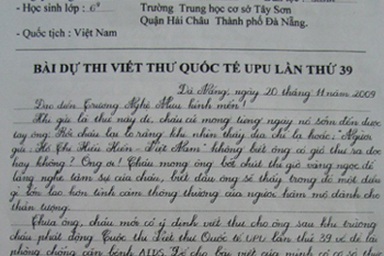 - Học sinh lớp : 6⁴
Trường Trung học cơ sở Tây Sơn
Quận Hải Châu Thành phố Đà Nẵng.
- Quốc tịch : Việt Nam
BÀI DỰ THI VIẾT THƯ QUỐC TẾ UPU LẦN THỨ 39
Đà Nẵng, ngày 20 tháng 11 năm 2009
Đạo diễn Trương Nghệ Mưu kính mến !
Khi gửi lá thư này đi, cháu cứ mong từng ngày nó sớm đến được
tay ông. Rồi cháu lại lo rằng khi nhìn thấy địa chỉ lạ hoắc: "Người
gửi: Hồ Thị Hiếu Hiền - Việt Nam" không biết ông có giở thư ra đọc
hay không ? Ông ơi! Cháu mong ông bớt chút thì giờ vàng ngọc để
lắng nghe tâm sự của cháu, biết đâu ông sẽ thấy trong đó một điều
gì lớn lao hơn tình cảm thông thường của người hâm mộ dành cho
thần tượng.
Thưa ông, cháu mới có ý định viết thư cho ông sau khi trường
cháu phát động Cuộc thi Viết thư Quốc tế UPU lần thứ 39 về đề tài
phòng chống căn bệnh AIDS. Để cho bài viết của mình có cơ sở thực